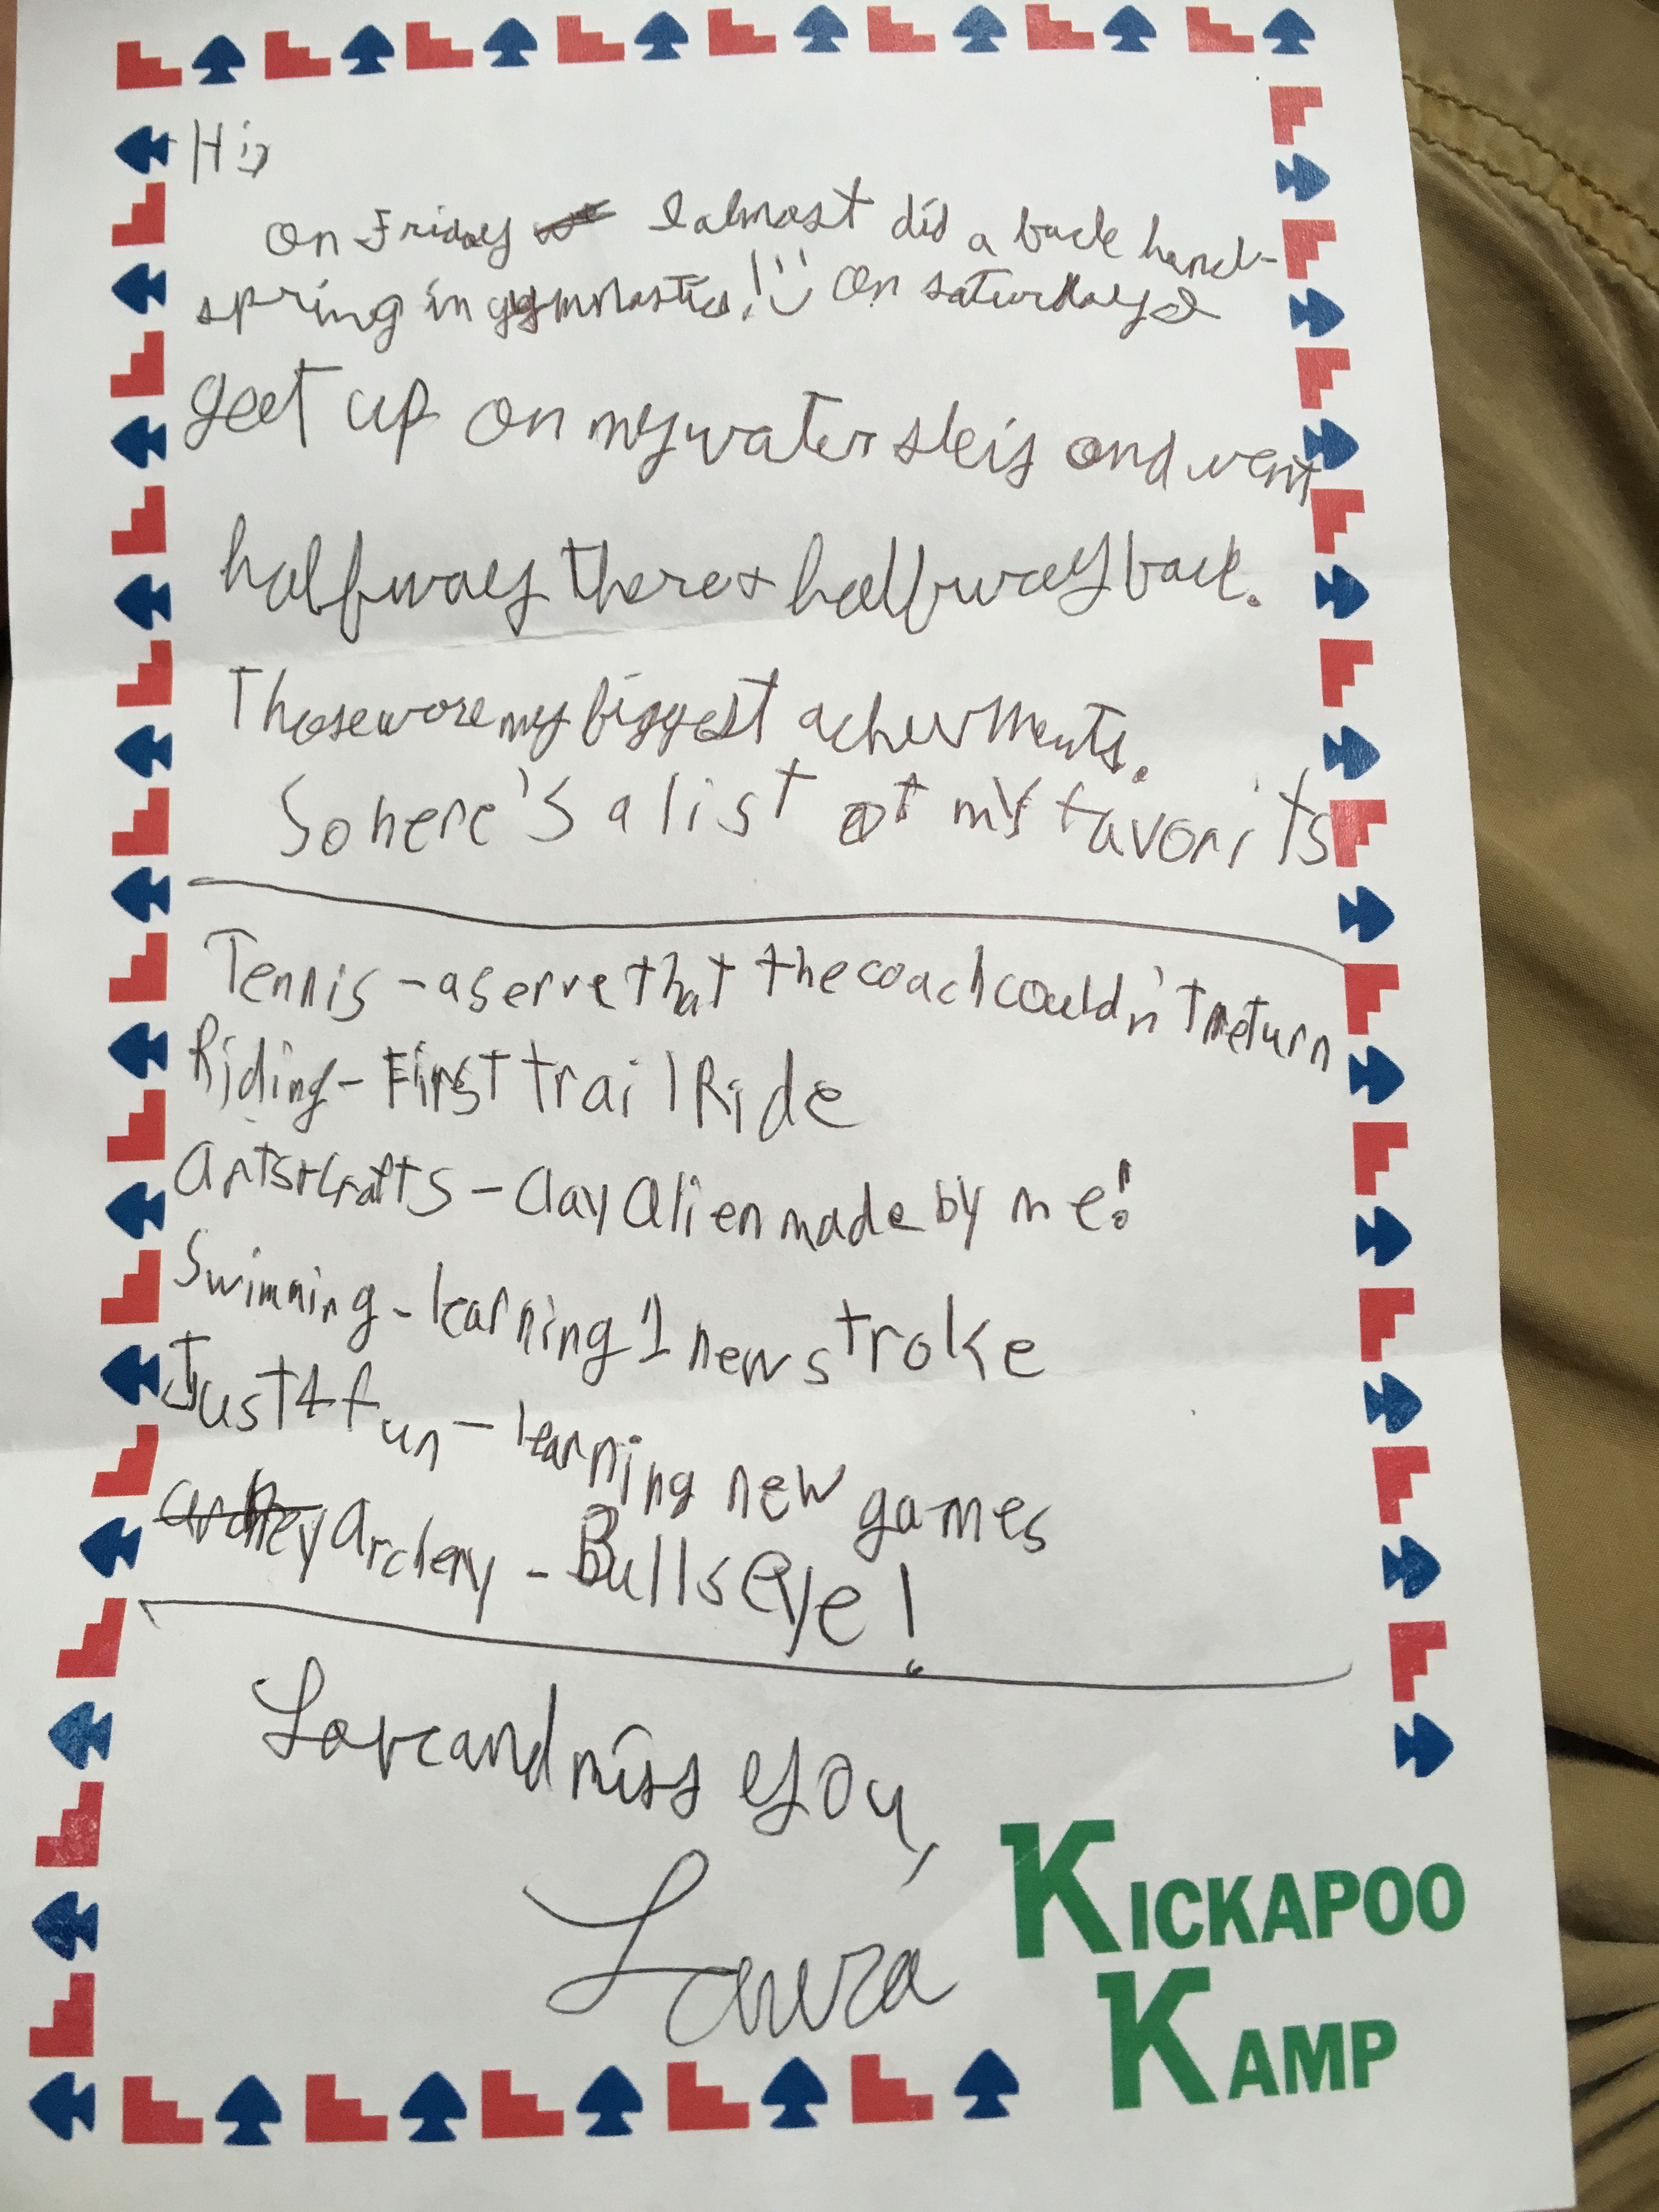 Hi:)
On Friday I almost did a back hand-
spring in gymnastics! :) On saturday I
geet up on my water skeis and went
halfway there + halfway back.
Those were my biggest acheivments.
So here's a list of my favorits
Tennis - a serve that the coach couldn't return
Riding - First trail Ride
arts + crafts - Clay alien made by me!
Swimming - learning 1 new stroke
Just 4 fun - learning new games
archery - Bullseye!
Love and miss you,
Laura
KICKAPOO
KAMP